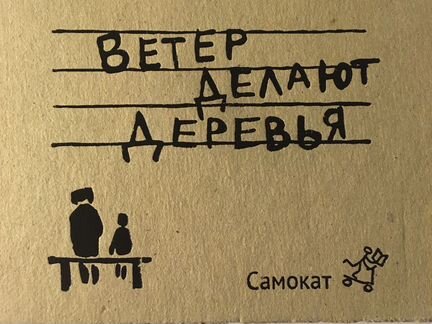 ВЕТЕР
ДЕЛАЮТ
ДЕРЕВЬЯ
Самокат